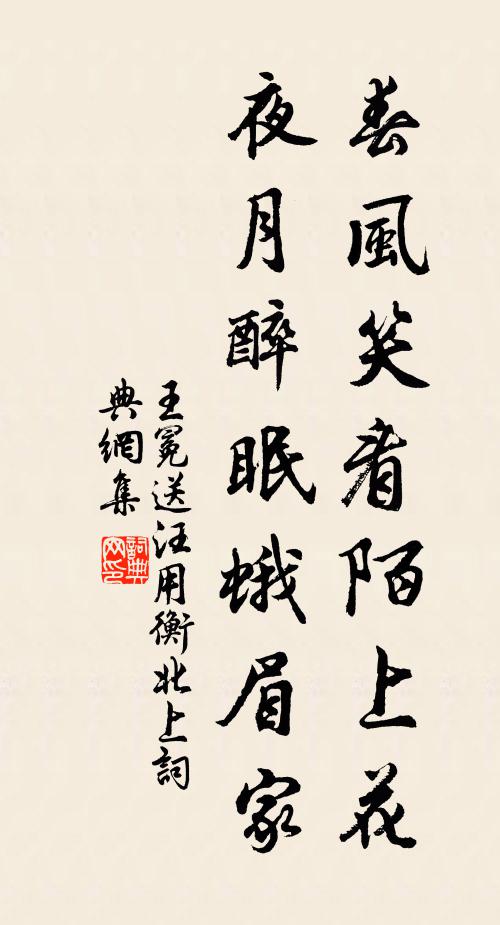 春風笑看陌上花
夜月醉眠蛾眉家
王冕送汪用衡北上詞
典網集
詞典网印